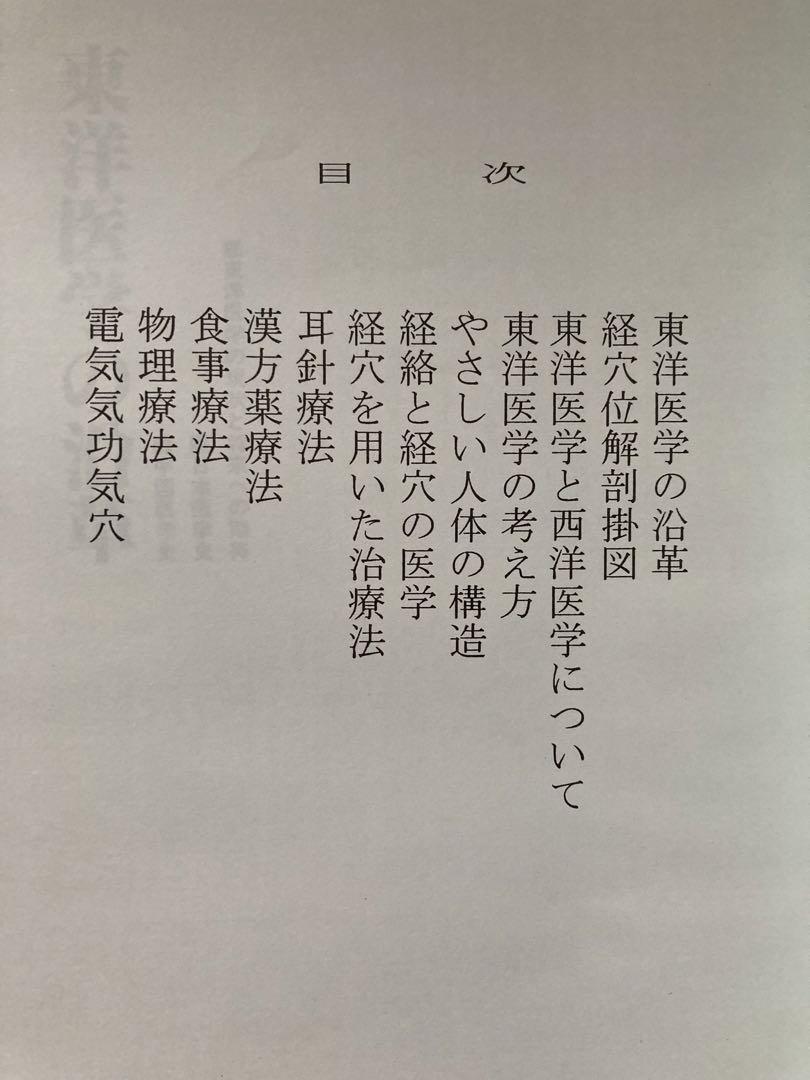 目次
東洋医学の沿革
経穴位解剖掛図
東洋医学と西洋医学について
東洋医学の考え方
やさしい人体の構造
経絡と経穴の医学
経穴を用いた治療法
耳針療法
漢方薬療法
食事療法
物理療法
電気気功気穴
東洋医学